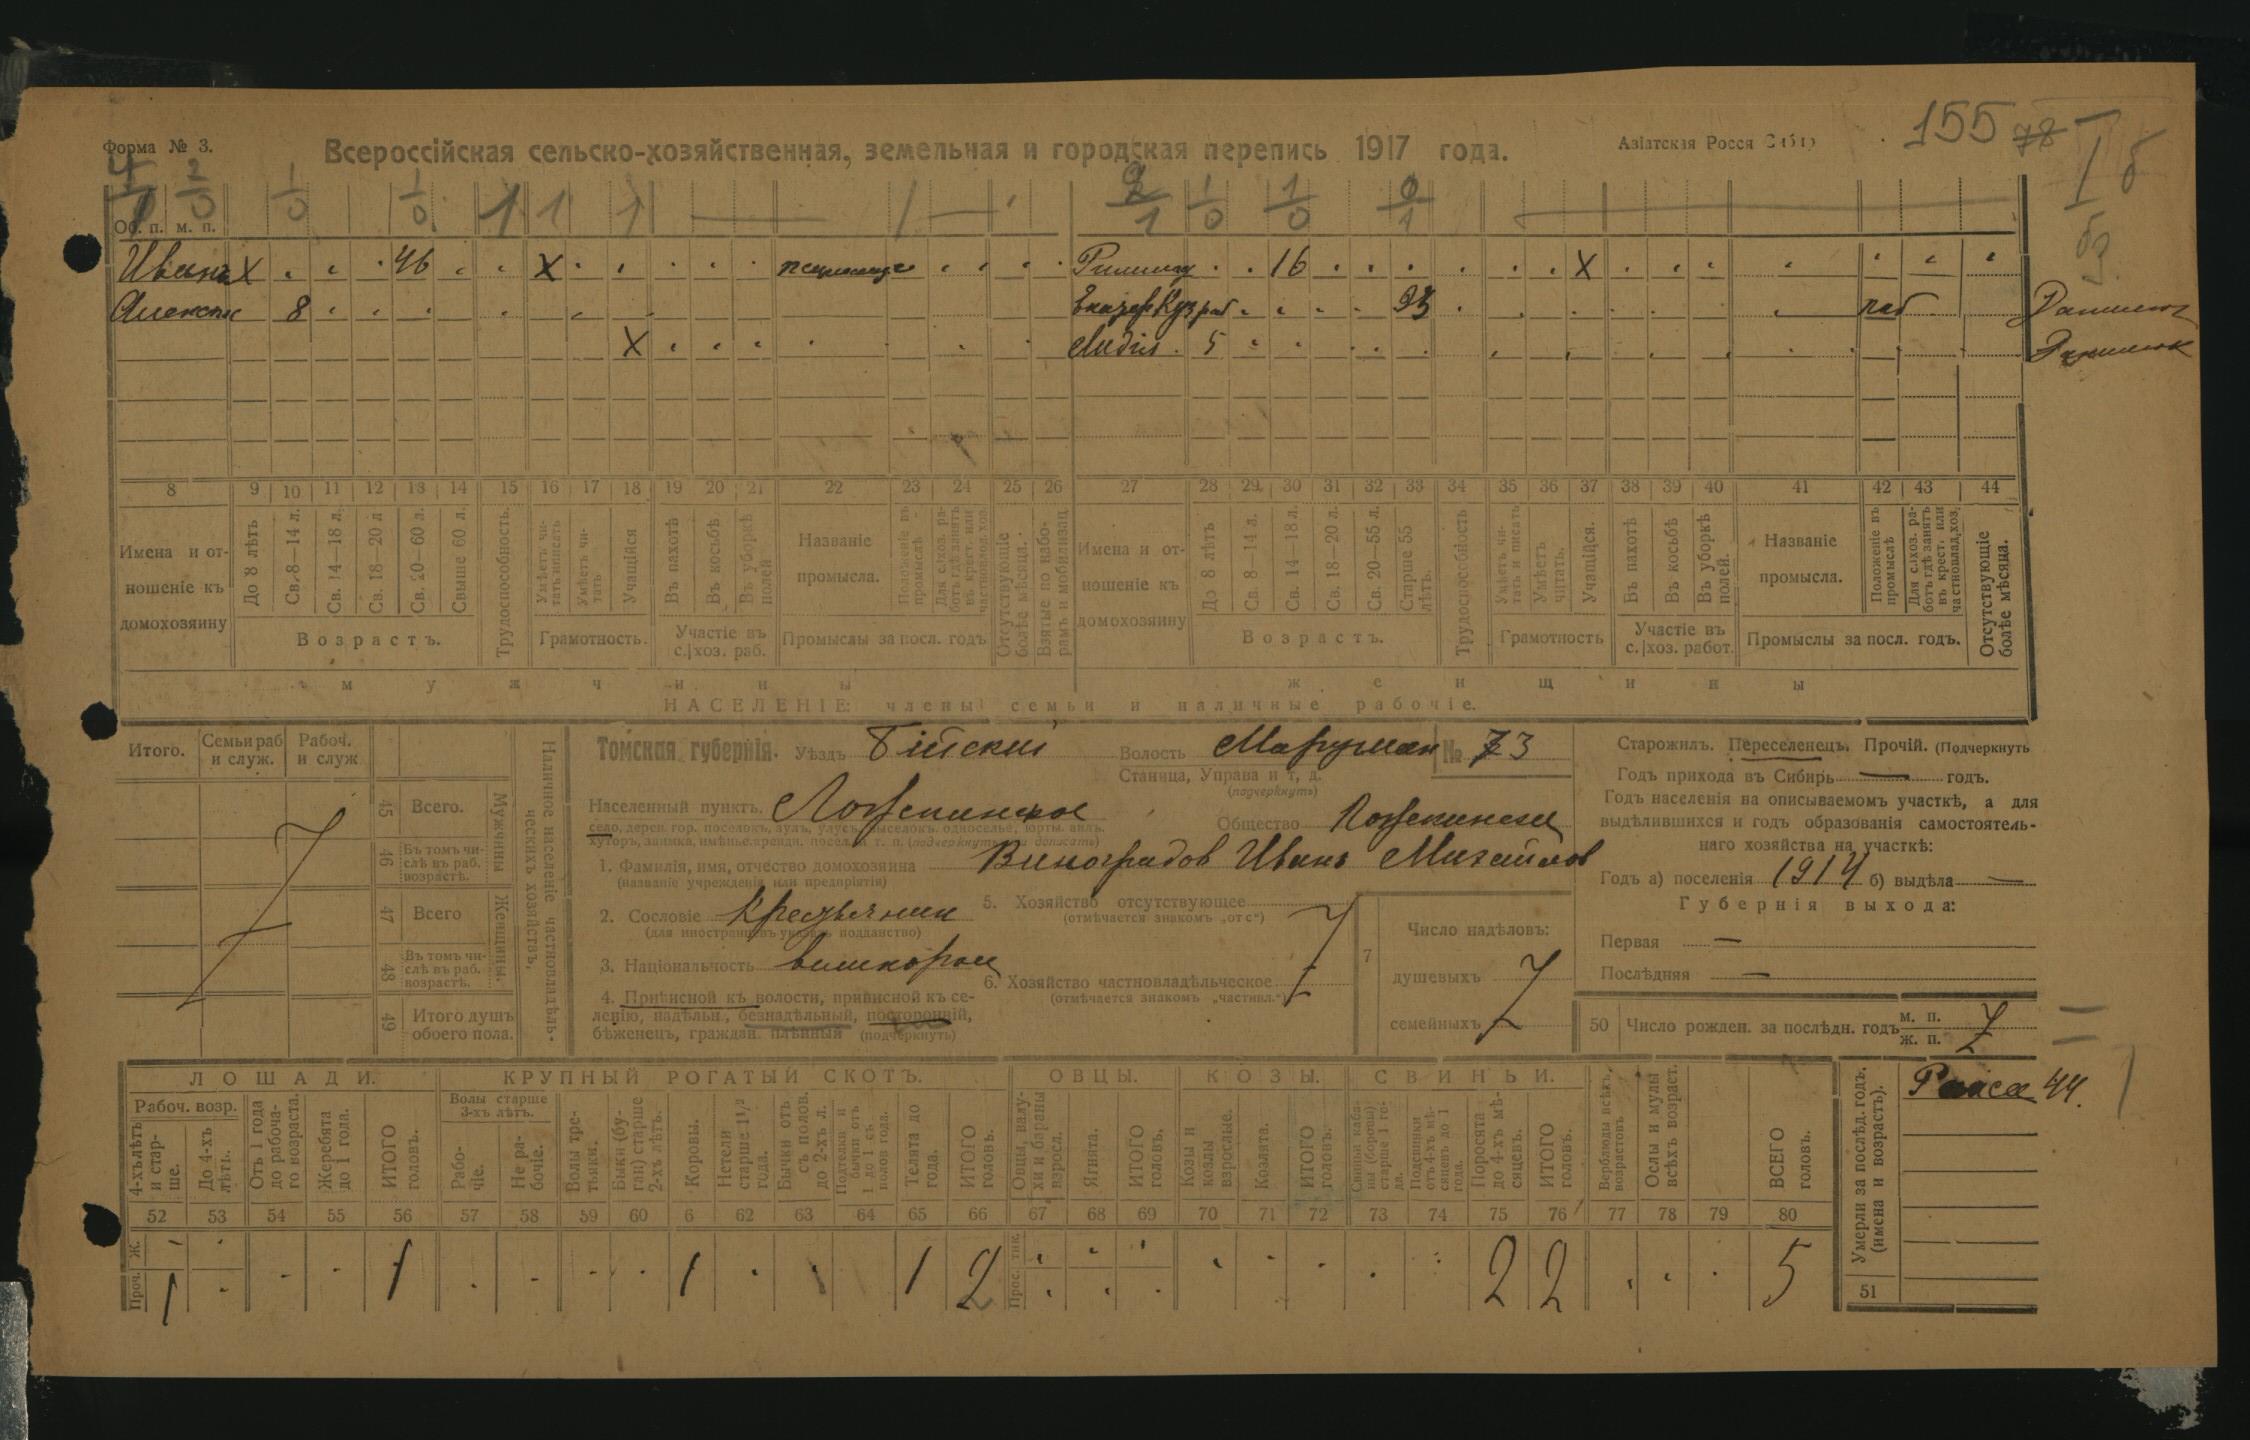 Форма № 3.
Всероссійская сельско-хозяйственная, земельная и городская перепись 1917 года.
Азіатская Росся
155 78
Об. п. м. п.
Иванъ X 46 X
16 X
8 Екатер Куз раб 93 раб
X Лидия 5
8 9 10 11 12 13 14 15 16 17 18 19 20 21 22 23 24 25 26 27 28 29 30 31 32 33 34 35 36 37 38 39 40 41 42 43 44
Имена и отношеніе къ домохозяину
До 8 лѣтъ
Св. 8—14 л.
Св. 14—18 л.
Св. 18—20 л
Св. 20—60 л.
Свыше 60 л.
Возрастъ.
Трудоспособность.
Умѣетъ читать и писать
Умѣетъ читать
Учащійся
Грамотность.
Въ пахотѣ
Въ косьбѣ
Въ уборкѣ полей
Участіе въ с.|хоз. раб.
Названіе промысла.
Положеніе въ промыслѣ
Для с.хоз. работъ гдѣ занятъ въ крест. или частновлад. хоз.
Промыслы за посл. годъ
Отсутствующіе болѣе мѣсяца.
Взятые по наборамъ и мобилизац
Имена и отношеніе къ домохозяину
До 8 лѣтъ
Св. 8—14 л.
Св. 14—18 л.
Св. 18—20 л.
Св. 20—55 л.
Старше 55 лѣтъ.
Возрастъ.
Трудоспособность
Умѣетъ читать и писать
Умѣетъ читать.
Учащійся.
Грамотность
Въ пахотѣ
Въ косьбѣ
Въ уборкѣ полей.
Участіе въ с.|хоз. работ.
Названіе промысла.
Положеніе въ промыслѣ
Для с.|хоз. работъ гдѣ занятъ въ крест. или частновлад.хоз.
Промыслы за посл. годъ.
Отсутствующіе болѣе мѣсяца.
мужчины
женщины
НАСЕЛЕНІЕ: члены семьи и наличные рабочіе.
Итого.
Семьи раб и служ.
Рабоч. и служ
45 Всего.
46 Въ томъ числѣ въ раб. возрастѣ.
47 Всего
48 Въ томъ числѣ въ раб. возрастѣ.
49 Итого душъ обоего пола.
Мужчины
Женщины.
Наличное населеніе частновладѣльческихъ хозяйствъ.
Томская губернія. Уѣздъ Бійский Волость № 73
Станица, Управа и т. д.
(подчеркнуть)
Населенный пунктъ.
Общество
село, дерев. гор. поселокъ, аулъ, улусъ, выселокъ, односелье, юрты. аилъ.
хуторъ, заимка, имѣнье, аренди. посел. и т. п. (подчеркнуть или дописать)
1. Фамилія, имя, отчество домохозяина Виноградов Иванъ Михайлов
(названіе учрежденія или предпріятія)
2. Сословіе
(для иностранцевъ указать подданство)
3. Національность
4. Приписной къ волости, приписной къ селенію, надѣльн., безнадѣльный, посторонній,
бѣженецъ, граждан. плѣнный (подчеркнуть)
5. Хозяйство отсутствующее
(отмѣчается знакомъ „отс“)
6. Хозяйство частновладѣльческое
(отмѣчается знакомъ „частвл.“)
7 Число надѣловъ:
душевыхъ
семейныхъ
Старожилъ. Переселенецъ. Прочій. (Подчеркнуть
Годъ прихода въ Сибирь — годъ.
Годъ населенія на описываемомъ участкѣ, а для
выдѣлившихся и годъ образованія самостоятель-
наго хозяйства на участкѣ:
Годъ а) поселенія 1914 б) выдѣла —
Губернія выхода:
Первая —
Послѣдняя —
50 Число рожден. за послѣдн. годъ м. п. ж. п.
ЛОШАДИ. КРУПНЫЙ РОГАТЫЙ СКОТЪ. ОВЦЫ. КОЗЫ. СВИНЬИ.
Рабоч. возр.
4-хъ лѣтъ и старше.
До 4-хъ лѣтъ.
Отъ 1 года до рабочаго возраста.
Жеребята до 1 года.
ИТОГО головъ.
Волы старше 3-хъ лѣтъ.
Рабочіе.
Не рабочіе.
Волы третьяки.
Быки (бугаи) старше 2-хъ лѣтъ.
Коровы.
Нетели старше 1 1/2 года.
Бычки отъ 1 съ полов. до 2-хъ л.
Подтелки и бычки отъ 1 до 1 съ полов года.
Телята до года.
ИТОГО головъ.
Овцы, валухи и бараны взросл.
Ягнята.
ИТОГО головъ.
Козы и козлы взрослые.
Козлята.
ИТОГО головъ.
Свиньи кабаны (боровы) старше 1 года.
Подсвинки отъ 4-хъ мѣсяцевъ до 1 года.
Поросята до 4-хъ мѣсяцевъ.
ИТОГО головъ.
Верблюды всѣхъ возрастовъ
Ослы и мулы всѣхъ возраст.
ВСЕГО головъ.
52 53 54 55 56 57 58 59 60 6 62 63 64 65 66 67 68 69 70 71 72 73 74 75 76 77 78 79 80
Ж. Проч. 1 1 1 1 2 Прос. тнк. 2 2 5
Умерли за послѣд. годъ. (имена и возрастъ).
51
Раиса 44.